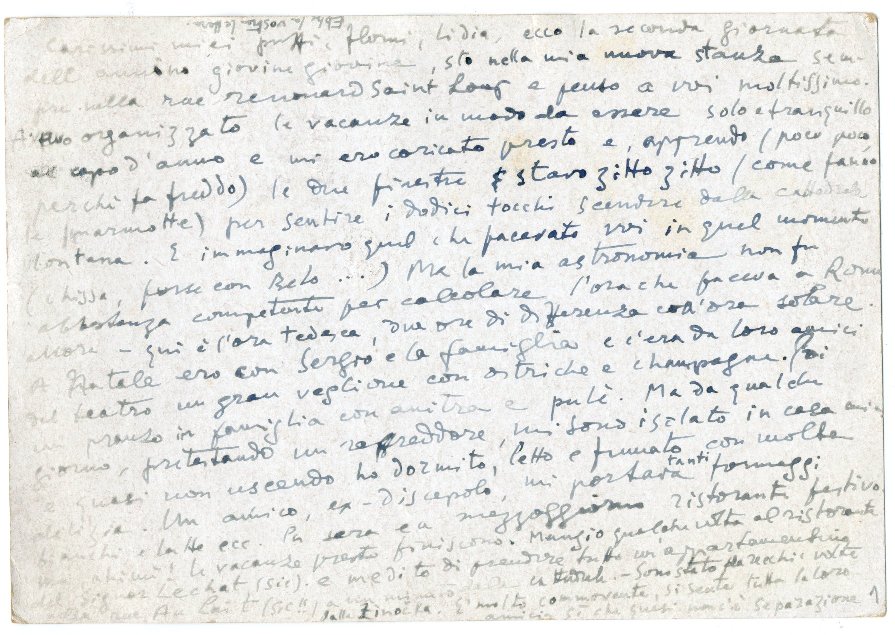 Ebbi la vostra lettera.
Carissimi miei putti, Flomi, Lidia, ecco la seconda giornata
dell'annino giovine giovine, sto nella mia nuova stanza sem-
pre nella rue Saint Loup e penso a voi moltissimo.
Avevo organizzato le vacanze in modo da essere solo e tranquillo
al capo d'anno e mi ero coricato presto e, aprendo (poco poco
perché fa freddo) le due finestre stavo zitto zitto (come fanno
le marmotte) per sentire i dodici tocchi scendere dalla cattedrale
lontana. E immaginavo quel che facevate voi in quel momento
(chissà, forse con Belo ...) Ma la mia astronomia non fu
abbastanza competente per calcolare l'ora che faceva a Roma
allora – qui è l'ora tedesca, due ore di differenza coll'ora solare.
A Natale ero con Sergio e la famiglia e c'era da loro amici
del teatro un gran veglione con ostriche e champagne. Poi
un pranzo in famiglia con anitra e puré. Ma da qualche
giorno, pretestando un raffreddore, mi sono isolato in casa mia
e quasi non uscendo ho dormito, letto e fumato con molta
delizia. Un amico, ex-discepolo, mi portava tanti formaggi
bianchi e latte ecc. La sera e a mezzogiorno ristoranti festivo
ma ahimé! le vacanze presto finiscono. Mangio qualche volta al ristorante
del signor Lechat (sic). e medito di prendere tutto un appartamentino
rue Au Lait (sic!!) a un minuto dalla cattedrale. – Sono stato parecchie volte
dalla E' molto commovente, si sente tutta la loro
amicizia sì che quasi non c'è separazione